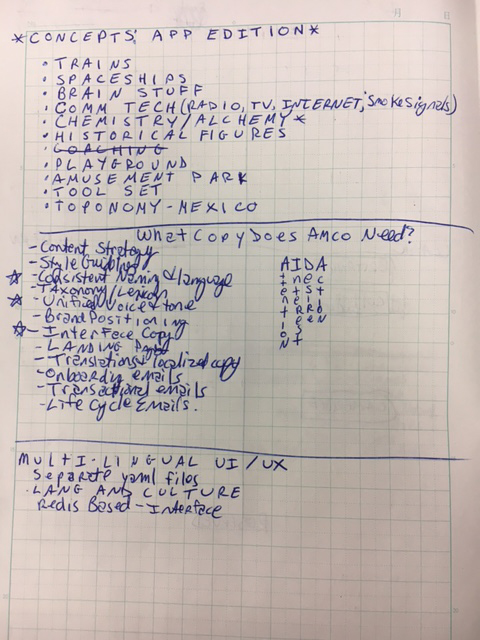 *CONCEPTS: APP EDITION*
• TRAINS
• SPACESHIPS
• BRAIN STUFF
• COMM TECH (RADIO, TV, INTERNET, SmokeSignals)
• CHEMISTRY/ALCHEMY *
• HISTORICAL FIGURES
• COACHING
• PLAYGROUND
• AMUSEMENT PARK
• TOOL SET
• TOPONOMY - MEXICO
What Copy Does AMCO Need?
- Content Strategy
- Style Guidlines
☆ - Consistent Naming & language
- Taxonomy/Lexicon
☆ - Unified Voice & tone
- Brand Positioning
☆ - Interface Copy
- LANDING
- Translations & localized copy
- Onboardin emails
- Transactional emails
- Life Cycle Emails.
AIDA
Attention
Interest
Desire
Action
MULTI-LINGUAL UI/UX
Separate yaml files
• LANG AND CULTURE
Redis Based - Interface
月 日